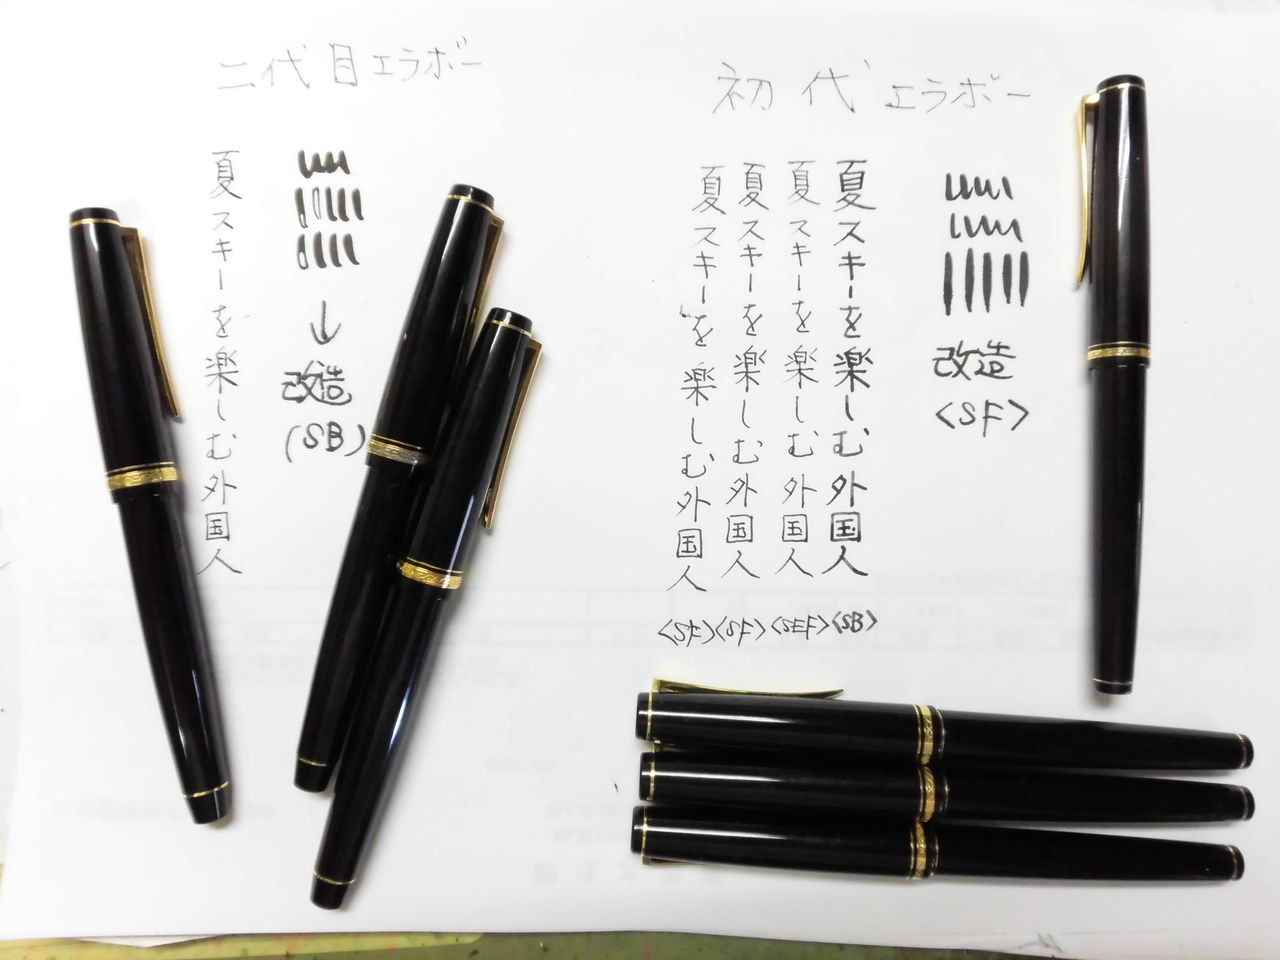 二代目エラボー
夏スキーを楽しむ外国人
改造
(SB)
初代エラボー
夏スキーを楽しむ外国人
夏スキーを楽しむ外国人
夏スキーを楽しむ外国人
夏スキーを楽しむ外国人
<SF><SF><SEF><SB>
改造
<SF>